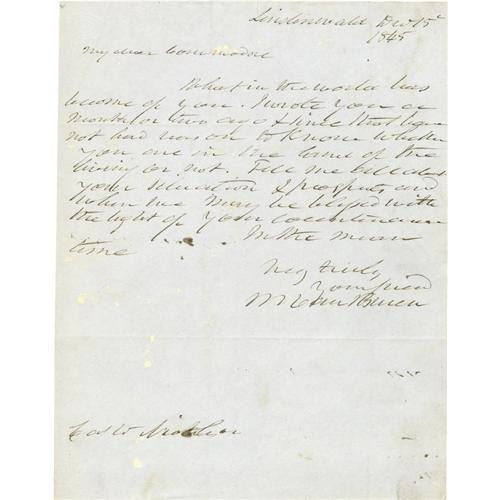 Lindenwald Dec 15th
1845
My dear Commodore
What in the world has
become of you. I wrote you a
month or two ago & since that have
not had reason to know whether
you are in the land of the
living or not. Tell me all about
your situation & prospects and
when we may be blessed with
the light of your countenance
In the mean
time
Very truly
Your friend
M Van Buren